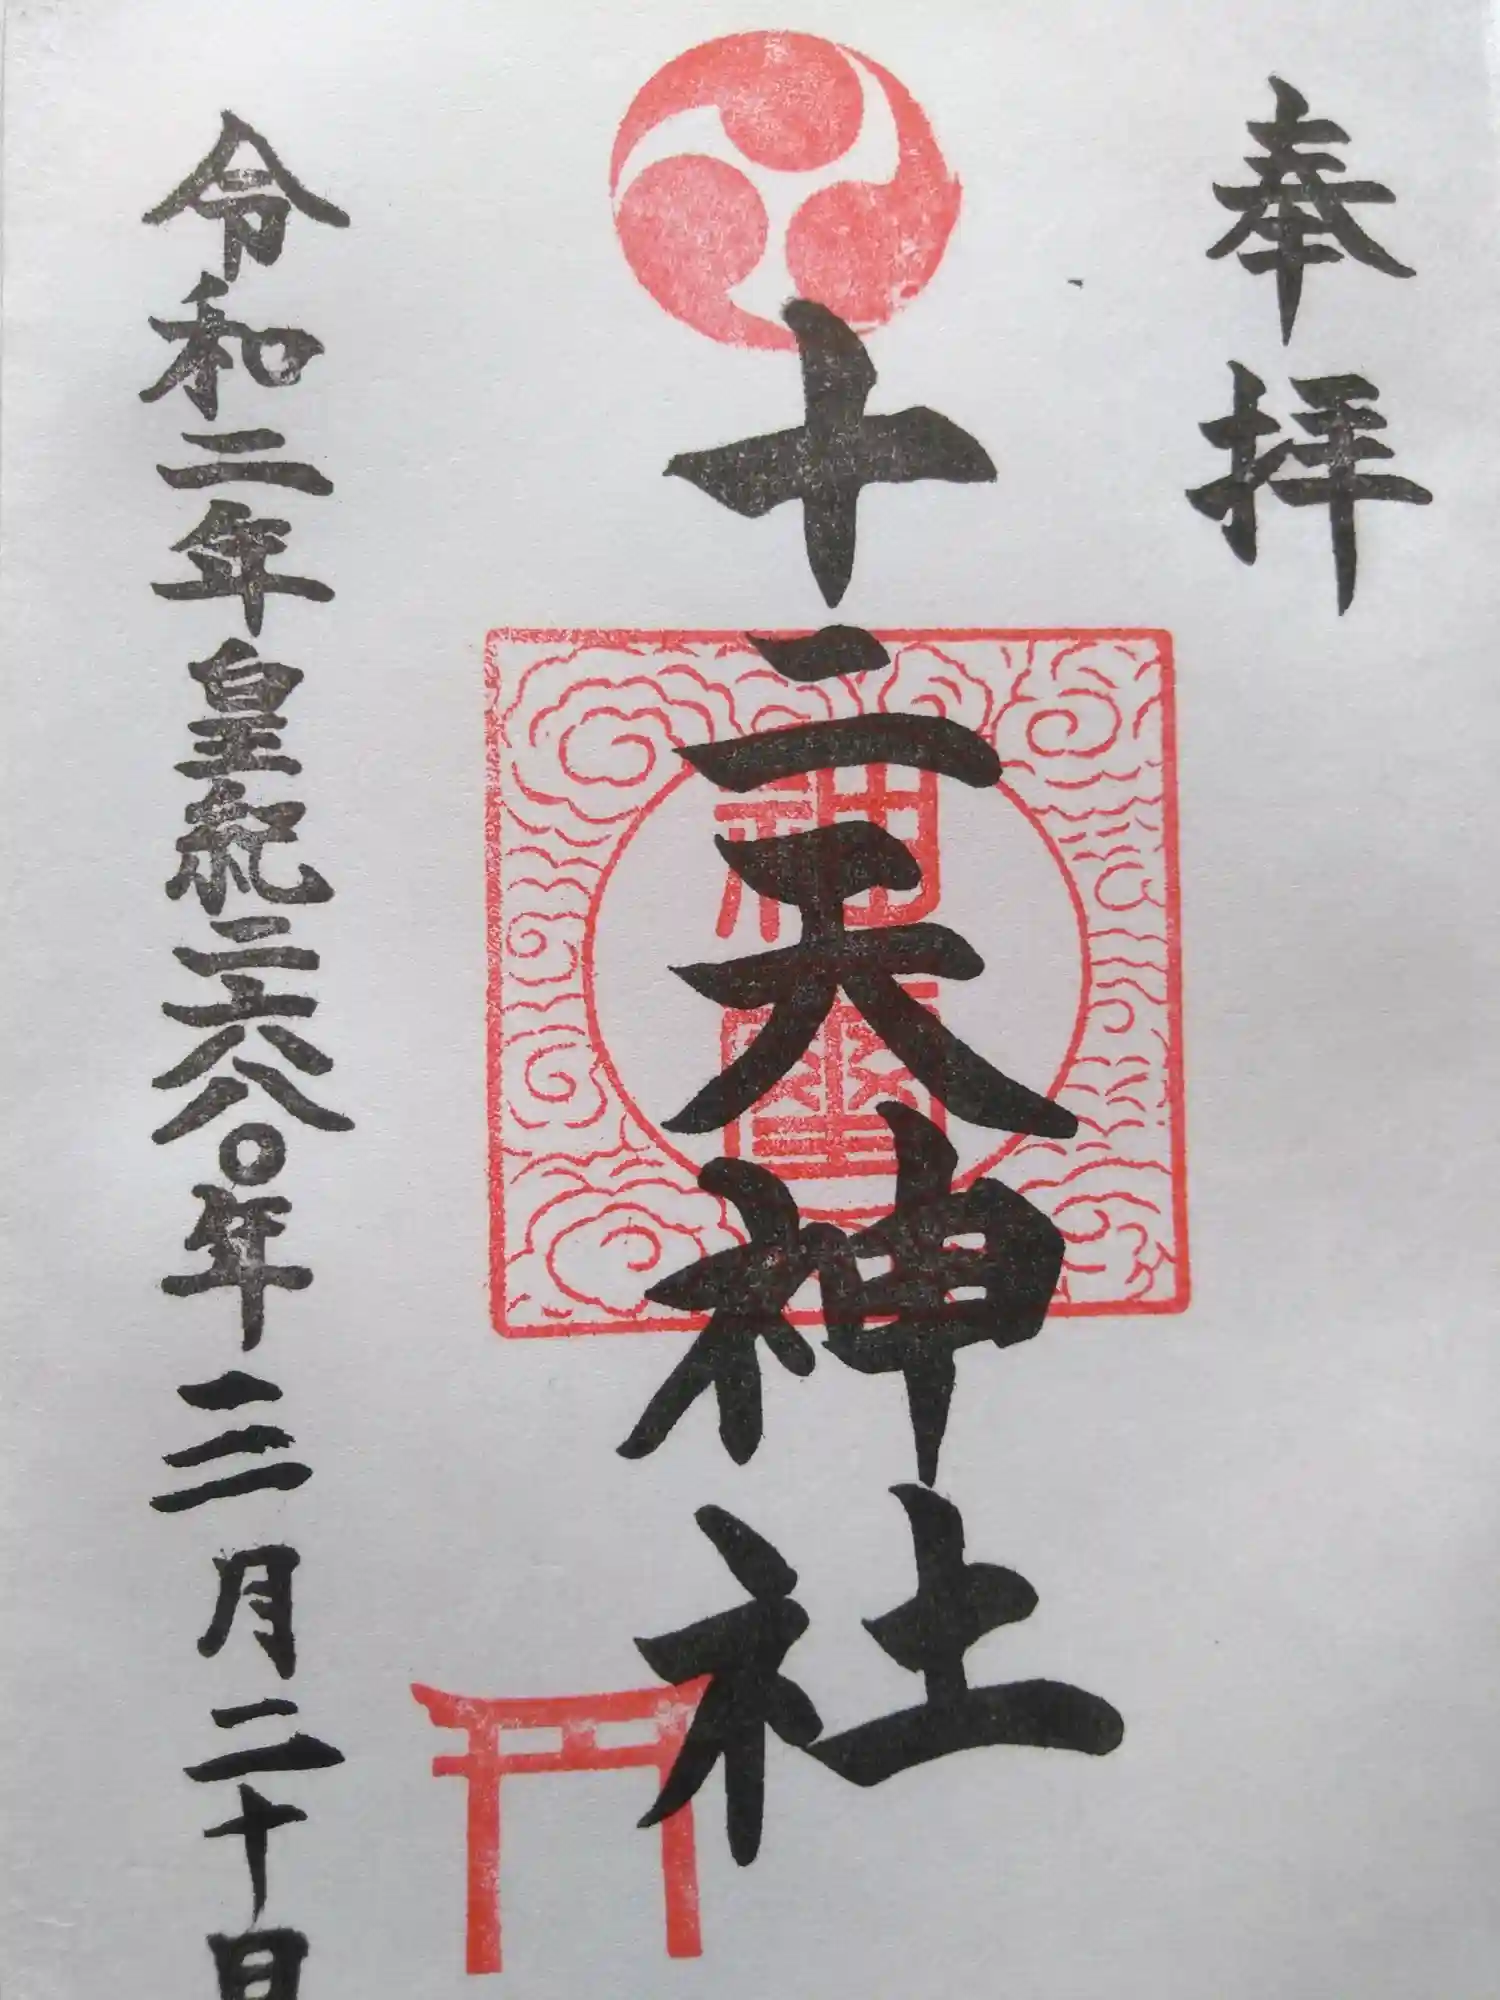 奉拝
十二天神社
神璽
令和二年皇紀二六八〇年三月二十日